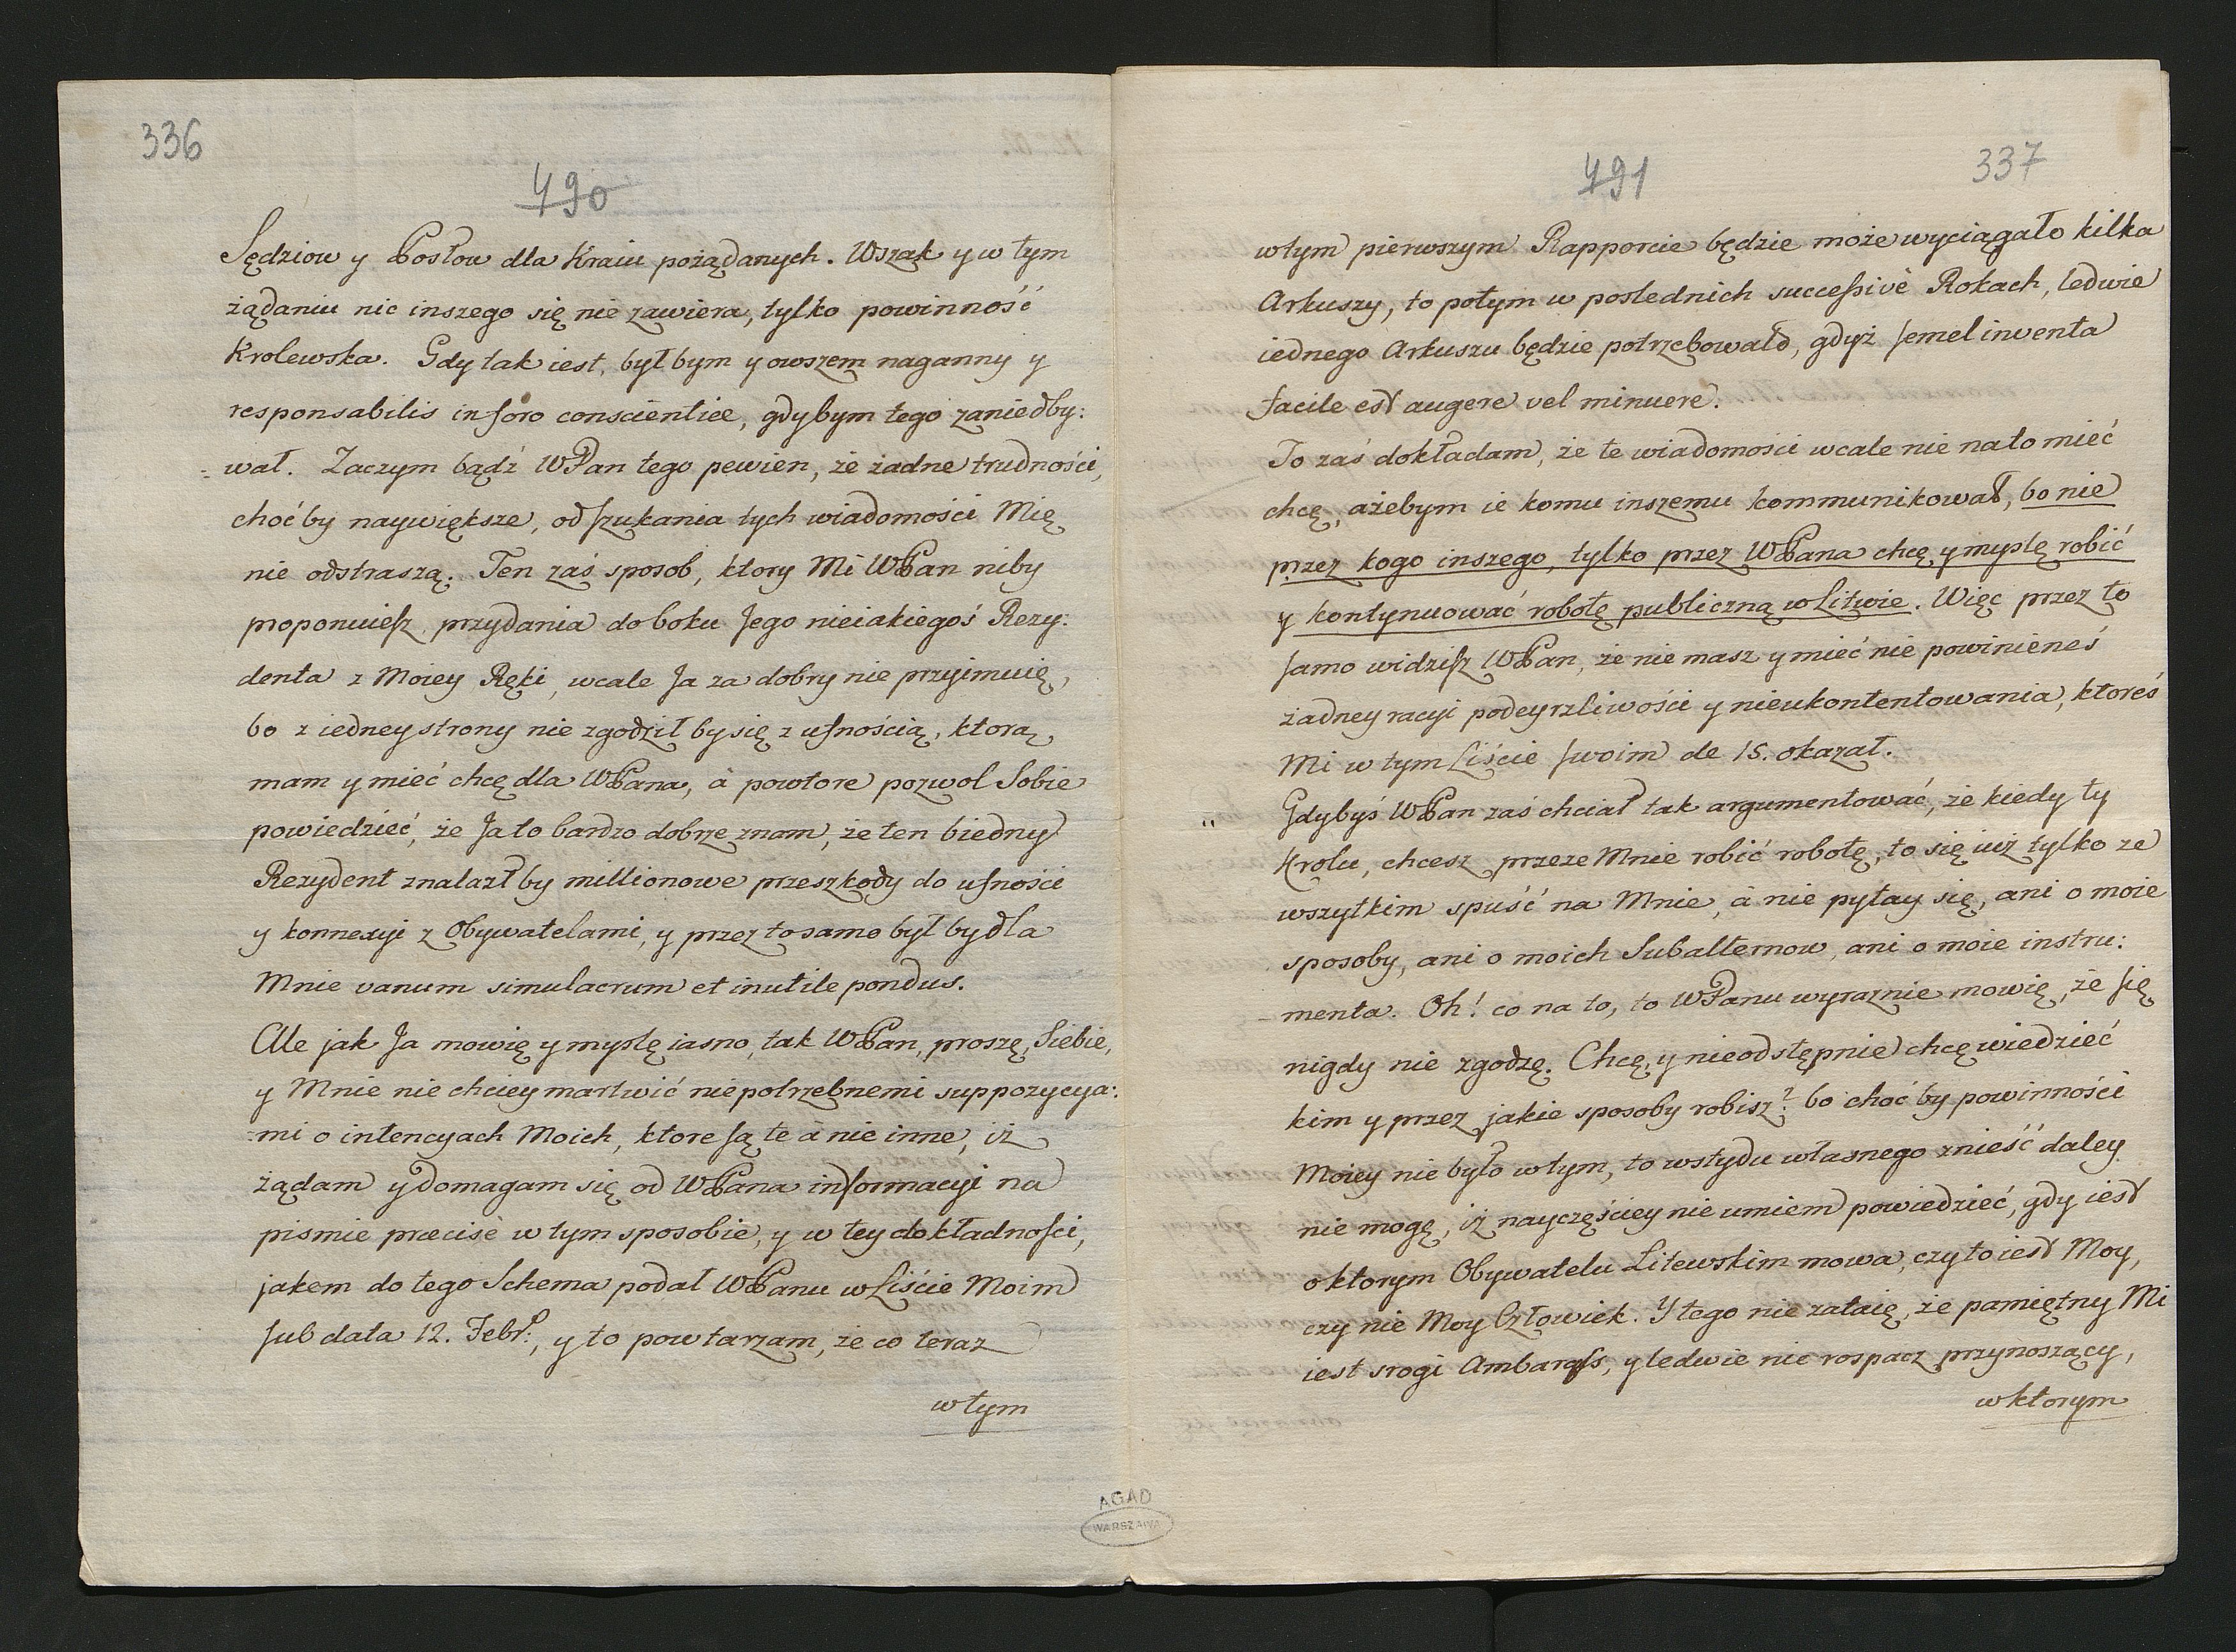 336
490
Sędziow y Posłow dla Kraiu pożądanych. Wszak y w tym
żądaniu nic inszego się nie zawiera, tylko powinność
Krolewska. Gdy tak iest, był bym y owszem naganny y
responsabilis in foro conscientiæ, gdybym tego zaniedby:
:wał. Zaczym bądź WPan tego pewien, że żadne trudności,
choćby naywiększe, od szukania tych wiadomości Mię
nie odstraszą. Ten zaś sposob, ktory Mi WPan niby
proponuiesz przydania do boku Jego nieiakiegoś Rezy:
denta z Moiey Ręki, wcale Ja za dobry nie przyimuię,
bo z iedney strony nie zgodził by się z ufnością, ktorą
mam y mieć chcę dla WPana, à powtore pozwol Sobie
powiedzieć, że Ja to bardzo dobrze znam, że ten biedny
Rezydent znalazł by millionowe przeszkody do ufności
y konnexyi z Obywatelami, y przez to samo był by dla
Mnie vanum simulacrum et inutile pondus.
Ale jak Ja mowię y myslę iasno, tak WPan, proszę, Siebie,
y Mnie nie chciey martwić niepotrzebnemi suppozycya:
:mi o intencyach Moich, ktore są te à nie inne, iż
żądam y domagam się od WPana informacyi na
pismie præcisè w tym sposobie, y w tey dokładności,
jakem do tego Schema podał WPanu w Liście Moim
sub data 12. Febr:, y to powtarzam, że co teraz
w tym
491
337
w tym pierwszym Rapporcie będzie może wyciągało kilka
Arkuszy, to potym w poslednich successivè Rokach, ledwie
iednego Arkuszu będzie potrzebowało, gdyż semel inventa
facile est augere vel minuere.
To zaś dokładam, że te wiadomości wcale nie na to mieć
chcę, ażebym ie komu inszemu kommunikował, bo nie
przez kogo inszego, tylko przez WPana chcę y myslę robić
y kontynuować robotę publiczną w Litwie. Więc przez to
samo widzisz WPan, że nie masz y mieć nie powinieneś
żadney racyi podeyrzliwości y nieukontentowania, ktoreś
Mi w tym Liście swoim de 15. okazał.
" Gdybyś WPan zaś chciał tak argumentować, że kiedy ty
Krolu, chcesz przeze Mnie robić robotę, to się iuż tylko ze
wszytkim spuść na Mnie, à nie pytay się, ani o moie
sposoby, ani o moich Subalternow, ani o moie instru:
menta. Oh! co na to, to WPanu wyraznie mowię, że się
nigdy nie zgodzę. Chcę, y nieodstępnie chcę wiedzieć
kim y przez jakie sposoby robisz? bo choć by powinności
Moiey nie było w tym, to wstydu własnego znieść daley
nie mogę, iż nayczęściey nie umiem powiedzieć, gdy iest
o ktorym Obywatelu Litewskim mowa, czy to iest Moy,
czy nie Moy Człowiek. Y tego nie zataię, że pamiętny Mi
iest srogi Ambarass, y ledwie nie rospacz przynoszący,
w ktorym
AGAD
WARSZAWA